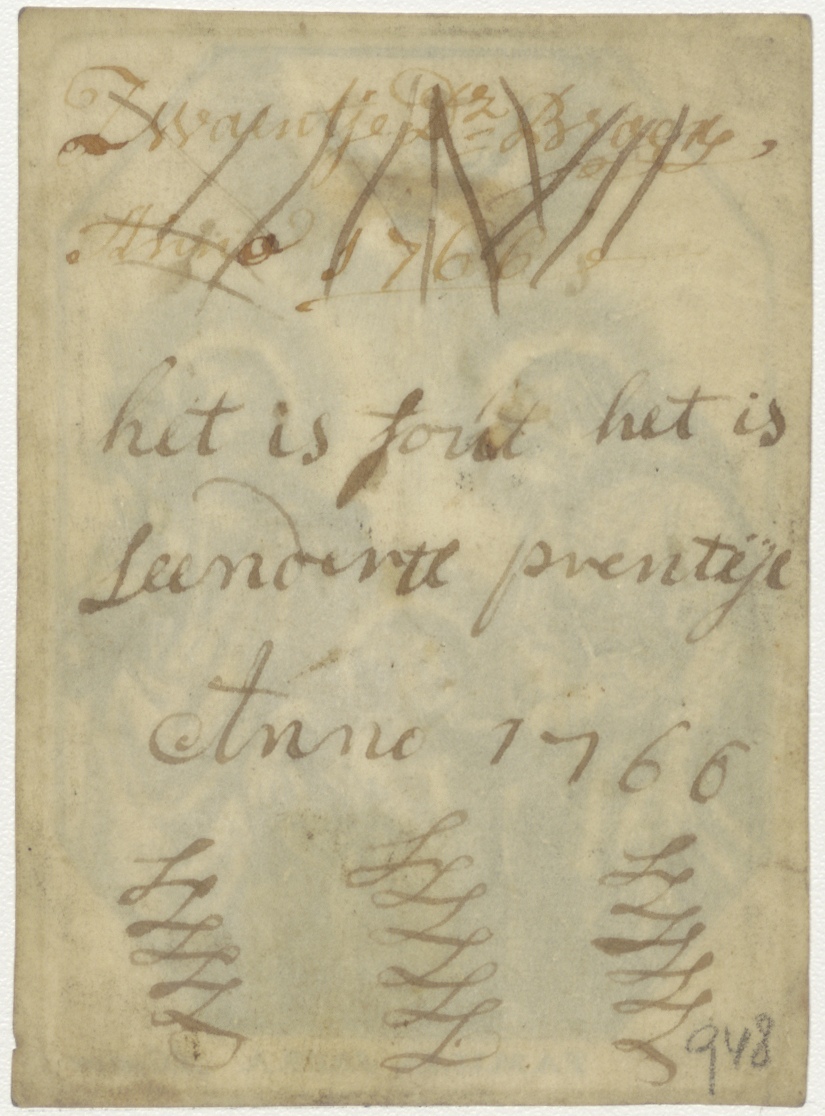 Zwaentje De Braeg,
Anno 1766
het is fout het is
Leenderte prentije
Anno 1766
948